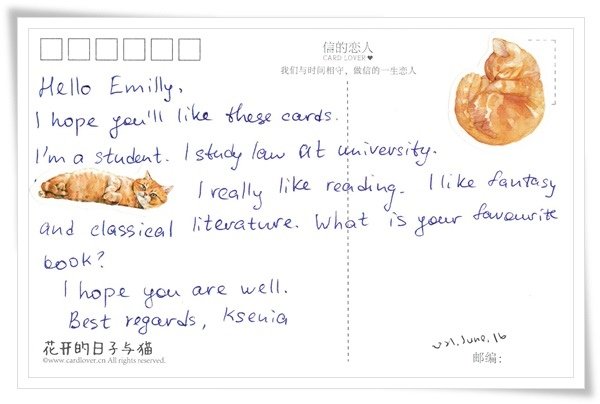 信的恋人
CARD LOVER♥
我们与时间相守，做信的一生恋人
Hello Emilly,
I hope you'll like these cards.
I'm a student. I study law at university.
I really like reading. I like fantasy
and classical literature. What is your favourite
book?
I hope you are well.
Best regards, Ksenia
花开的日子与猫
©www.cardlover.cn All rights reserved.
June. 16
邮编: